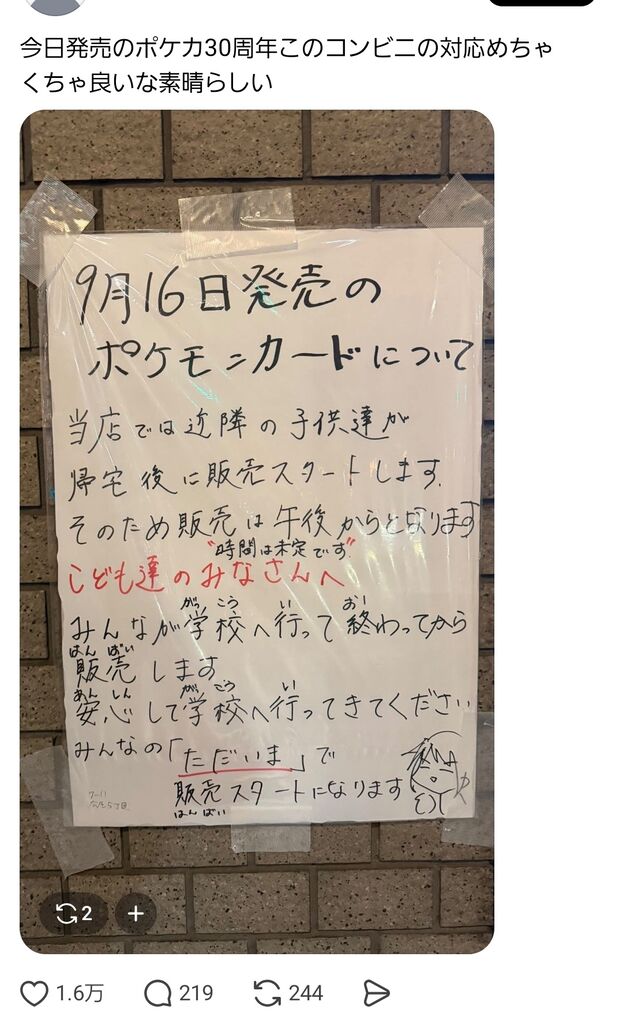 今日発売のポケカ30周年このコンビニの対応めちゃ
くちゃ良いな素晴らしい
9月16日発売の
ポケモンカードについて
当店では近隣の子供達が
帰宅後に販売スタートします.
そのため販売は午後からとなります
"時間は未定です"
こども達のみなさんへ
がっこう い お
みんなが学校へ行って終わってから
はんばい
販売します
あんしん がっこう い
安心して学校へ行ってきてください
みんなの「ただいま」で
販売スタートになります
はんばい
7-11
2
+
1.6万
219
244